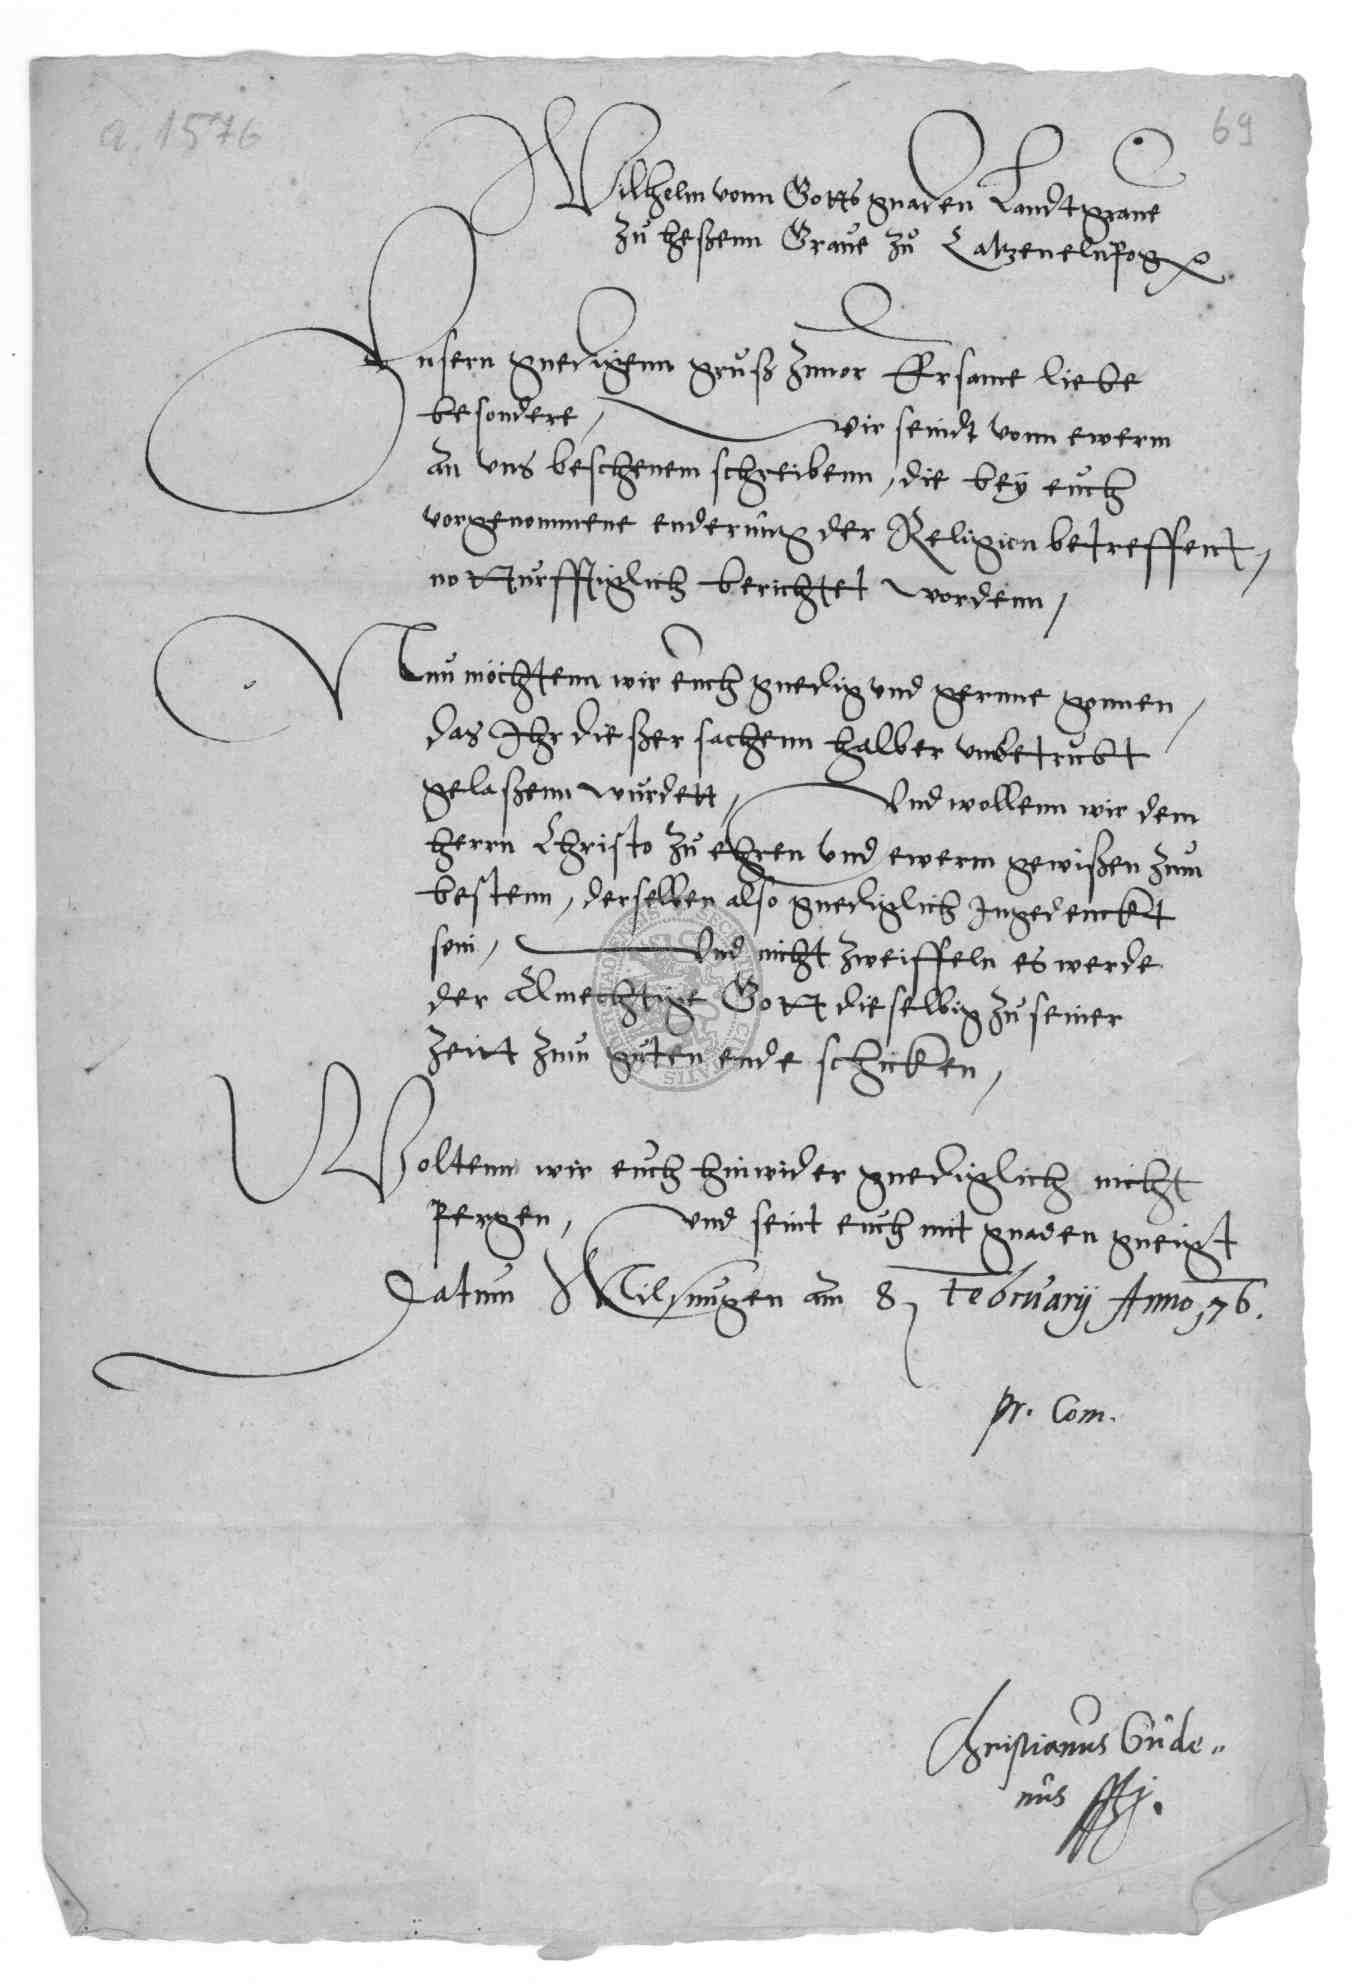 a. 1576
69
Wilhelm vonn Gotts gnaden Landtgraue
zu Heßenn Graue zu Catzenelnpog
Vnsern gnedigenn gruß zuuor Ersame liebe
besondere, Wir seindt vonn ewerm
an vns beschenem schreibenn, die bey euch
vorgenommene enderung der Religion betreffent,
notturfftiglich berichtet wordenn,
Nun möchtenn wir euch gnedig vnd gerne gonnen,
das Ihr dießer sachenn halber vnbetrubt
gelaßenn wurdett, Vnd wollenn wir dem
herrn Christo zu ehren vnd ewerm gewißen zum
bestenn, derselben also gnediglich Ingedenckt
sein, Vnd nicht zweiffeln es werde
der Almechtige Gott dieselbig zu seiner
zeitt zum guten ende schicken,
Woltenn wir euch hinwider gnediglich nicht
pergen, vnd seint euch mit gnaden gneigt
Datum Milsungen am 8, Februarij Anno, 76.
pr. Com.
Christianus Gude-
nus